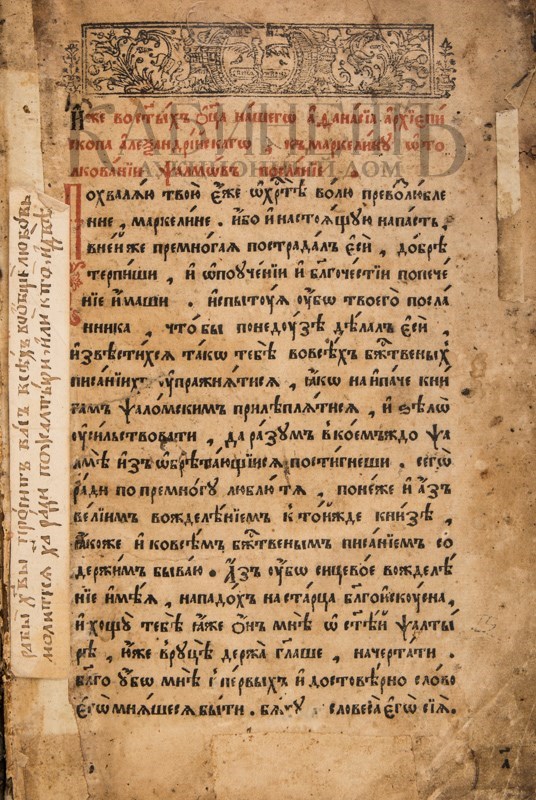 И҆́же во ст҃ы́хъ ѻ҆ц҃а̀ на́шегѡ а҆ѳана́сїа а҆рхїєпи
скопа а҆леѯандрі́йскагѡ , къ маркелі́нꙋ ѡ҆ то
лкова́нїи ѱалмѡ́въ посла́нїе .
Похвалѧ́ю твою̀ є҆́же ѡ҆ хрⷭ҇тѣ̀ во́лю превозлю́бле
ние , маркели́не . и҆́бо и҆ настоѧ́щꙋю напа́сть ,
в не́йже премно́гаѧ пострада́лъ є҆сѝ , до́брѣ
терпи́ши , и҆ ѡ҆ поꙋче́нїи и҆ бл҃гоче́стїи попече́
нїе и҆́маши . и҆спытꙋ́ѧ ᲂу҆́бо твоего̀ посла́
нника , что̀ бы по недꙋ́зѣ дѣ́лалъ є҆сѝ ,
и҆звѣсти́хсѧ та́кѡ тебѣ̀ во всѣ́хъ бж҃твеныхъ
писа́нїихъ ᲂу҆пражнѧ́тисѧ , ꙗ҆́кѡ на и҆па́че кни
гамъ ѱало́мскимъ прилѣплѧ́тисѧ , и҆ ѕѣлѡ̀
ᲂу҆си́льствовати , да ра́зꙋмъ в ко́емъждо ѱа
лмѣ̀ и҆зъѡбрѣта́ющїисѧ пости́гнеши . сегѡ̀
ра́ди по премно́гꙋ люблю́ тѧ , поне́же и҆ а҆́зъ
ве́лїимъ вожделѣ́нїемъ к то́йжде кни́зѣ ,
ꙗ҆́коже и҆ ко всѣ́мъ бж҃твенымъ писа́нїемъ со
держи́мъ быва́ю . А҆́зъ ᲂу҆́бо сицево́е вожделѣ́
нїе и҆мѣ́ѧ , напа́дохъ на ста́рца бл҃гои҆скꙋ́сна ,
и҆ хощꙋ̀ тебѣ̀ ꙗ҆̀же ѻ҆́нъ мнѣ̀ ѡ҆ ст҃ѣ́й ѱалты́
рѣ , ю҆́же в рꙋцѣ̀ держа̀ гл҃аше , начерта́ти .
бл҃го ᲂу҆́бо мнѣ̀ с пе́рвыхъ и҆ достовѣ́рно сло́во
є҆гѡ̀ мнѧ́шесѧ бы́ти . бѧ́хꙋ словеса̀ є҆гѡ̀ сїѧ̀ .
КАБИНЕТЪ
АУКЦИОННЫЙ ДОМ